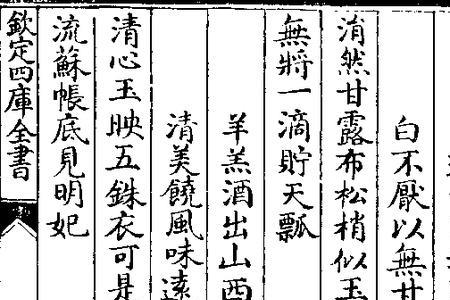 白不厭以無甘
淯然甘露布松梢似玉
無將一滴貯天瓢
羊羔酒出山西
清美饒風味逺
清心玉映五銖衣可是
流蘇帳底見明妃
欽定四庫全書